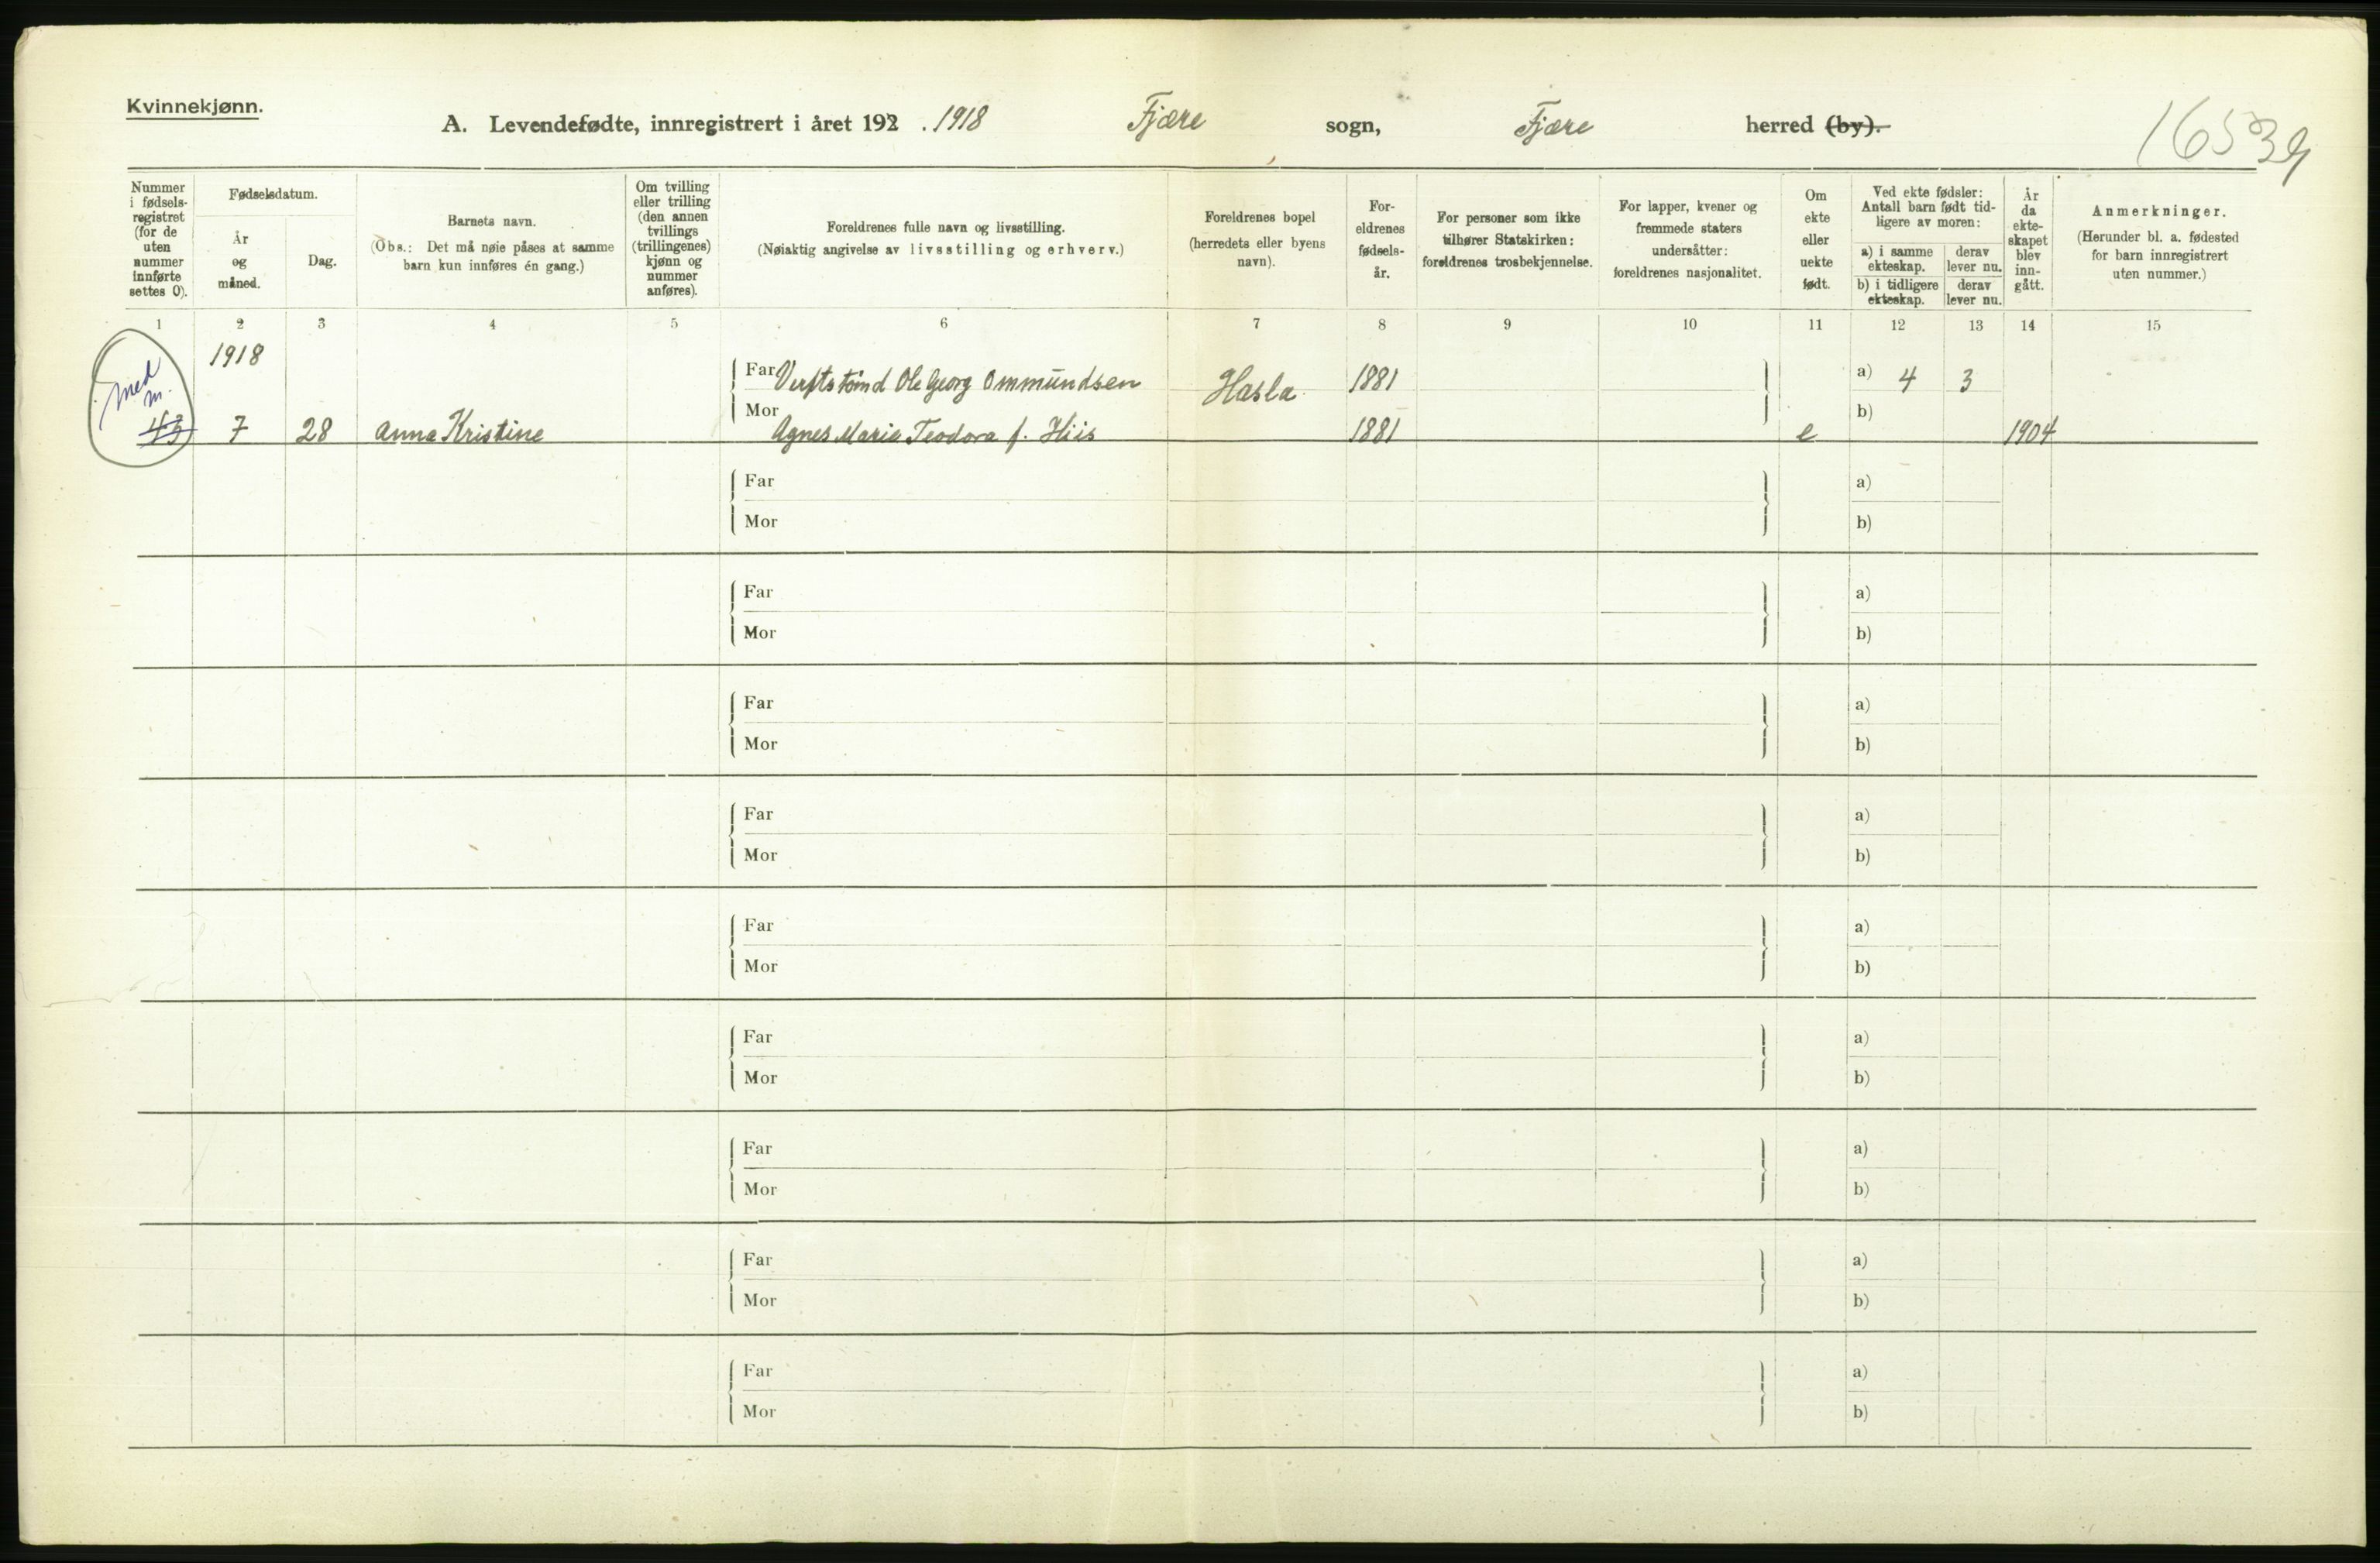 Kvinnekjønn.
A. Levendefødte, innregistrert i året 192 . 1918 Fjære sogn, Fjære herred (by).
16539
Nummer i fødsels-registret (for de uten nummer innførte settes 0).
Fødselsdatum.
År og måned.
Dag.
Barnets navn.
(Obs.: Det må nøie påses at samme barn kun innføres én gang.)
Om tvilling eller trilling (den annen tvillings (trillingenes) kjønn og nummer anføres).
Foreldrenes fulle navn og livsstilling.
(Nøiaktig angivelse av livsstilling og erhverv.)
Foreldrenes bopel (herredets eller byens navn).
For-eldrenes fødsels-år.
For personer som ikke tilhører Statskirken: foreldrenes trosbekjennelse.
For lapper, kvener og fremmede staters undersåtter: foreldrenes nasjonalitet.
Om ekte eller uekte født.
Ved ekte fødsler: Antall barn født tid-ligere av moren:
a) i samme ekteskap.
derav lever nu.
b) i tidligere ekteskap.
derav lever nu.
År da ekte-skapet blev inn-gått.
Anmerkninger.
(Herunder bl. a. fødested for barn innregistrert uten nummer.)
1 2 3 4 5 6 7 8 9 10 11 12 13 14 15
med m.
1918
Far Ole Georg Ommundsen Hasla 1881 a) 4 3
Mor b)
43 7 28 Anna Kristine Agnes Marie Teodora f. Hiis 1881 e 1904
Far a)
Mor b)
Far a)
Mor b)
Far a)
Mor b)
Far a)
Mor b)
Far a)
Mor b)
Far a)
Mor b)
Far a)
Mor b)
Far a)
Mor b)
Far a)
Mor b)